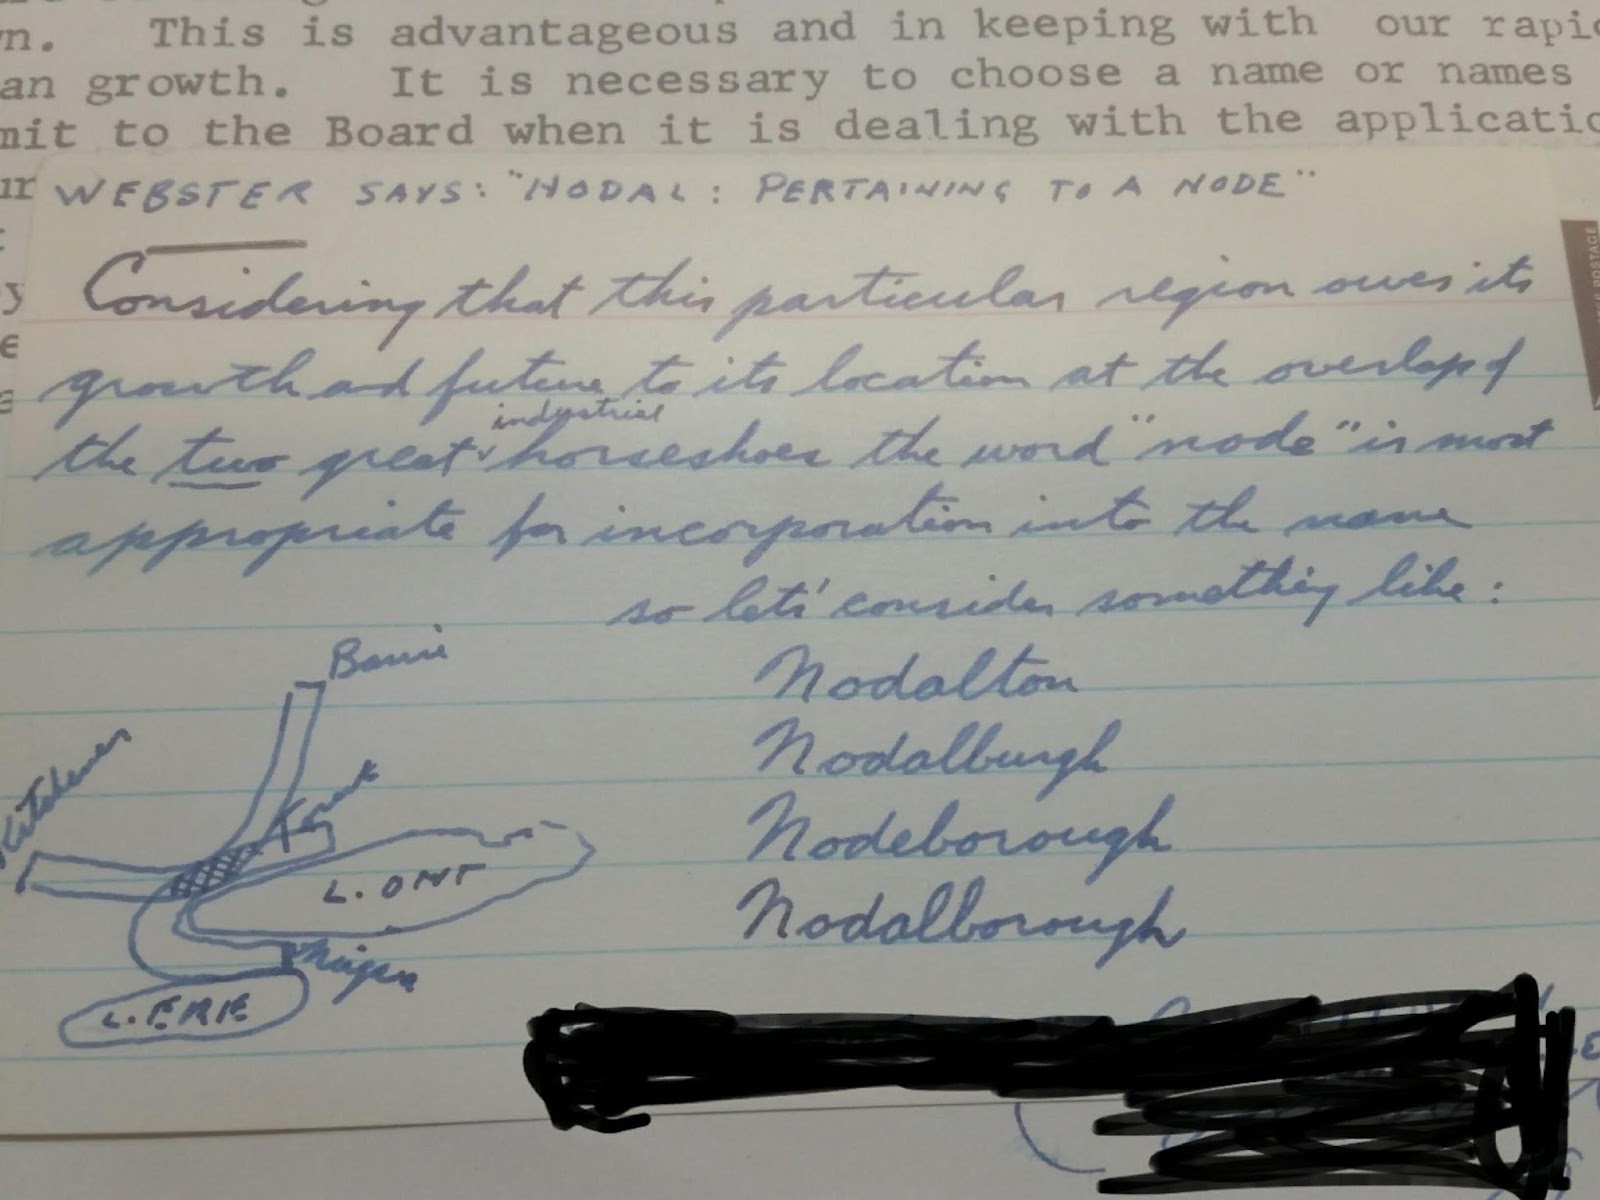 n. This is advantageous and in keeping with our rapi
an growth. It is necessary to choose a name or names
mit to the Board when it is dealing with the applicatio
ur
WEBSTER SAYS: "NODAL: PERTAINING TO A NODE"
POSTAGE
Considering that this particular region owes its
growth and future to its location at the overlap of
the two great industrial horseshoes the word "node" is most
appropriate for incorporation into the name
so lets' consider something like:
Barrie
Nodalton
Kitchener
Nodalburgh
Toront
Nodeborough
L. ONT
Nodalborough
Niagara
L. ERIE